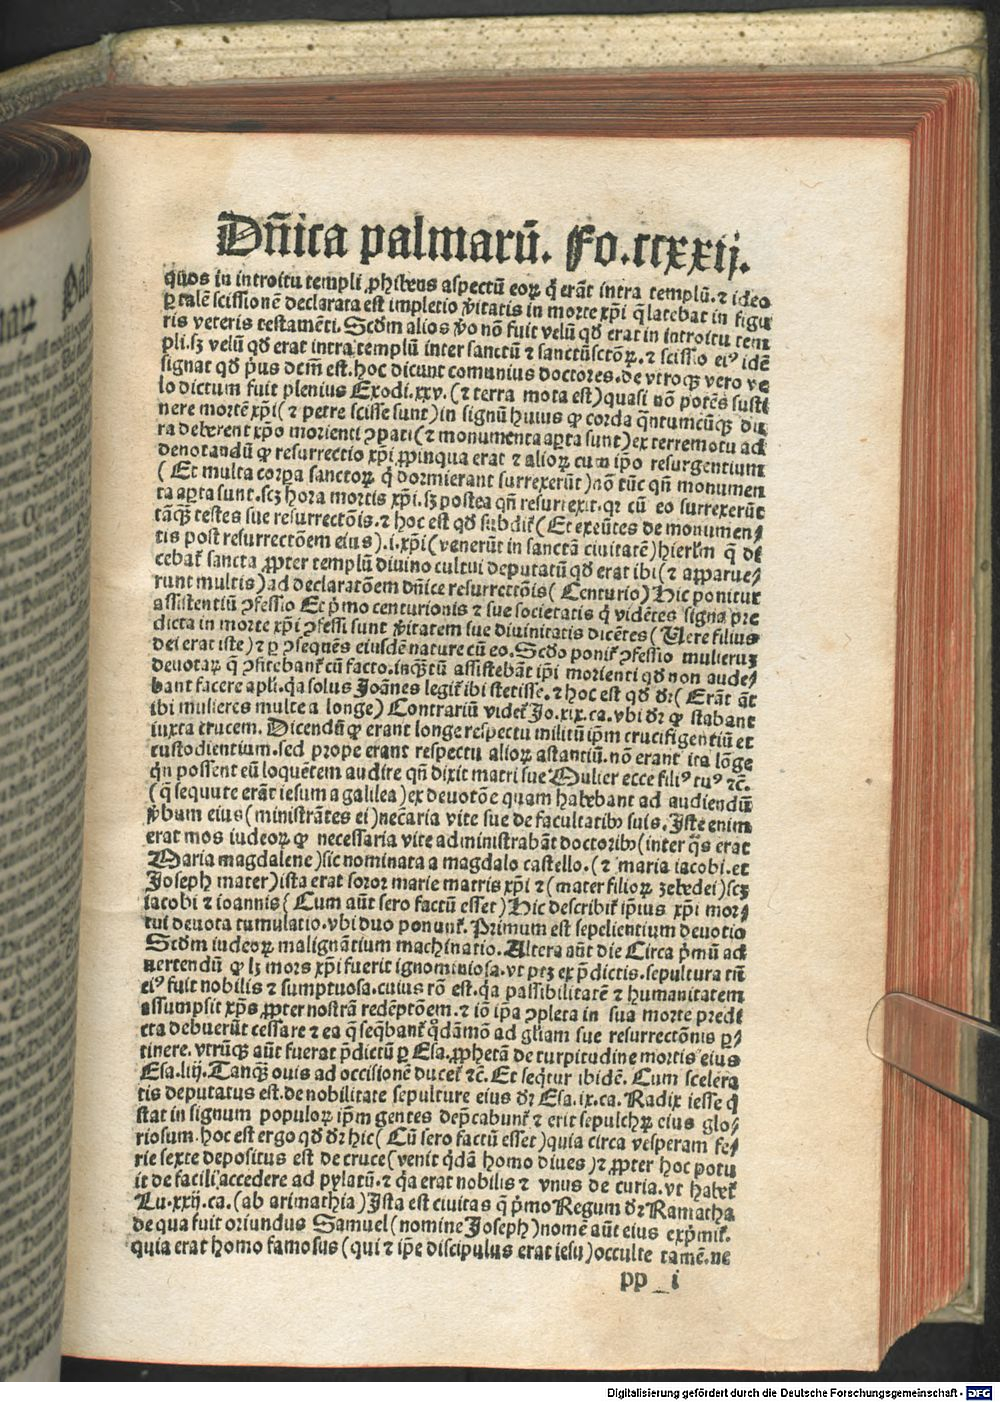 Dñica palmarū. Fo.ccxxij.
quos in introitu templi ꝓhibens aspectū eoꝝ q̇ erāt intra templū. ⁊ ideo
ꝑ talē scissionē declarata est impletio v̓itatis in morte xp̄i q̄ latebat in figu
ris veteris testamēti. Scd̓m alios v̓o nō fuit velū qd̓ erat in introitu tem
pli. sꝫ velū qd̓ erat intra templū inter sanctū ⁊ sanctū sctōꝝ. ⁊ scissio eiꝰ idē
signat qd̓ pͥus dcm̄ est. hoc dicunt comunius doctores. de vtroqꝫ vero ve
lo dictum fuit plenius Exodi.xxv. (⁊ terra mota est) quasi nō potēs susti
nere mortē xp̄i (⁊ petre scisse sunt) in signū huius ꝙ corda q̄ntumcūqꝫ du
ra deberent xp̄o morienti ꝯpati (⁊ monumenta aꝑta sunt) ex terremotu ad
denotandū ꝙ resurrectio xp̄i ꝓpinqua erat ⁊ alioꝝ cum ip̄o resurgentium
(Et multa corꝑa sanctoꝝ q̇ dormierant surrexerūt) nō tūc qn̄ monumen
ta aꝑta sunt. scꝫ hora mortis xp̄i. sꝫ postea qn̄ resurrexit. qꝛ cū eo surrexerūt
tāqꝫ testes sue resurrectōis. ⁊ hoc est qd̓ subdit᷑ (Et exeūtes de monumen⸗
tis post resurrectōem eius).i. xp̄i (venerūt in sanctā ciuitatē) hierl̓m q̄ di
cebat᷑ sancta ꝓpter templū diuino cultui deputatū qd̓ erat ibi (⁊ apparue⸗
runt multis) ad declaratōem dn̄ice resurrectōis (Centurio) Hic ponitur
assistentiū ꝯfessio Et pͥmo centurionis ⁊ sue societatis q̇ vidētes signa pre
dicta in morte xp̄i ꝯfessi sunt v̓itatem sue diuinitatis dicētes (Uere filius
dei erat iste) ⁊ ꝑ ꝯsequēs eiusdē nature cū eo. Scd̓o ponit᷑ ꝯfessio mulieruꝫ
deuotaꝝ q̄ ꝯfitebant᷑ cū facto. inqꝫtū assistebāt ip̄i morienti qd̓ non aude⸗
bant facere apli. q̇a solus Joānes legit᷑ ibi stetisse. ⁊ hoc est qd̓ dr̄ (Erāt āt
ibi mulieres multe a longe) Contrariū videt᷑ Jo.xix.ca. vbi dr̄ ꝙ stabant
iuxta crucem. Dicendū ꝙ erant longe respectu militū ip̄m crucifigentiū et
custodientium. sed prope erant respectu alioꝝ astantiū. nō erant ita lōge
q̇n possent eū loquētem audire qn̄ dixit matri sue Mulier ecce filiꝰ tuꝰ ⁊c̄.
(q̄ sequute erāt iesum a galilea) ex deuotōe quam habebant ad audiendū
v̓bum eius (ministrātes ei) nec̄aria vite sue de facultatibꝰ suis. Iste enim
erat mos iudeoꝝ ꝙ necessaria vite administrabāt doctoribꝰ (inter q̄s erat
Maria magdalene) sic nominata a magdalo castello. (⁊ maria iacobi. et
Joseph mater) ista erat soror marie matris xp̄i ⁊ (mater filioꝝ zebedei) scꝫ
iacobi ⁊ ioannis (Cum aūt sero factū esset) Hic describit᷑ ip̄ius xp̄i mor⸗
tui deuota tumulatio. vbi duo ponunt᷑. Primum est sepelientium deuotio
Scd̓m iudeoꝝ malignātium machinatio. Altera aūt die Circa pͥmū ad
uertendū ꝙ lꝫ mors xp̄i fuerit ignominiosa. vt ptꝫ ex p̄dictis. sepultura tn̄
eiꝰ fuit nobilis ⁊ sumptuosa. cuius rō est. q̇a passibilitatē ⁊ humanitatem
assumpsit xp̄s ꝓpter nostrā redēptōem. ⁊ iō ip̄a ꝯpleta in sua morte predi
cta debuerūt cessare ⁊ ea q̄ seq̄bant᷑ q̇dāmō ad gl̓iam sue resurrectōnis ꝑ⸗
tinere. vtrūqꝫ aūt fuerat p̄dictū ꝑ Esa. ꝓphetā de turpitudine mortis eius
Esa.liij. Tanqꝫ ouis ad occisionē ducet᷑ ⁊c̄. Et seq̇tur ibidē. Cum scelera
tis deputatus est. de nobilitate sepulture eius dr̄ Esa.ix.ca. Radix iesse q̇
stat in signum populoꝝ ip̄m gentes dep̄cabunt᷑ ⁊ erit sepulchꝝ eius glo⸗
riosum. hoc est ergo qd̓ dr̄ hic (Cū sero factū esset) quia circa vesperam fe⸗
rie sexte depositus est de cruce (venit q̇dā homo diues) ⁊ ꝓpter hoc potu
it de facili accedere ad pylatū. ⁊ q̇a erat nobilis ⁊ vnus de curia. vt habet᷑
Lu.xxij.ca. (ab arimathia) Ista est ciuitas q̄ pͥmo Regum dr̄ Ramatha
de qua fuit oriundus Samuel (nomine Joseph) nomē aūt eius expͥmit᷑.
quia erat homo famosus (qui ⁊ ip̄e discipulus erat iesu) occulte tamē. ne
pp i
Digitalisierung gefördert durch die Deutsche Forschungsgemeinschaft - DFG